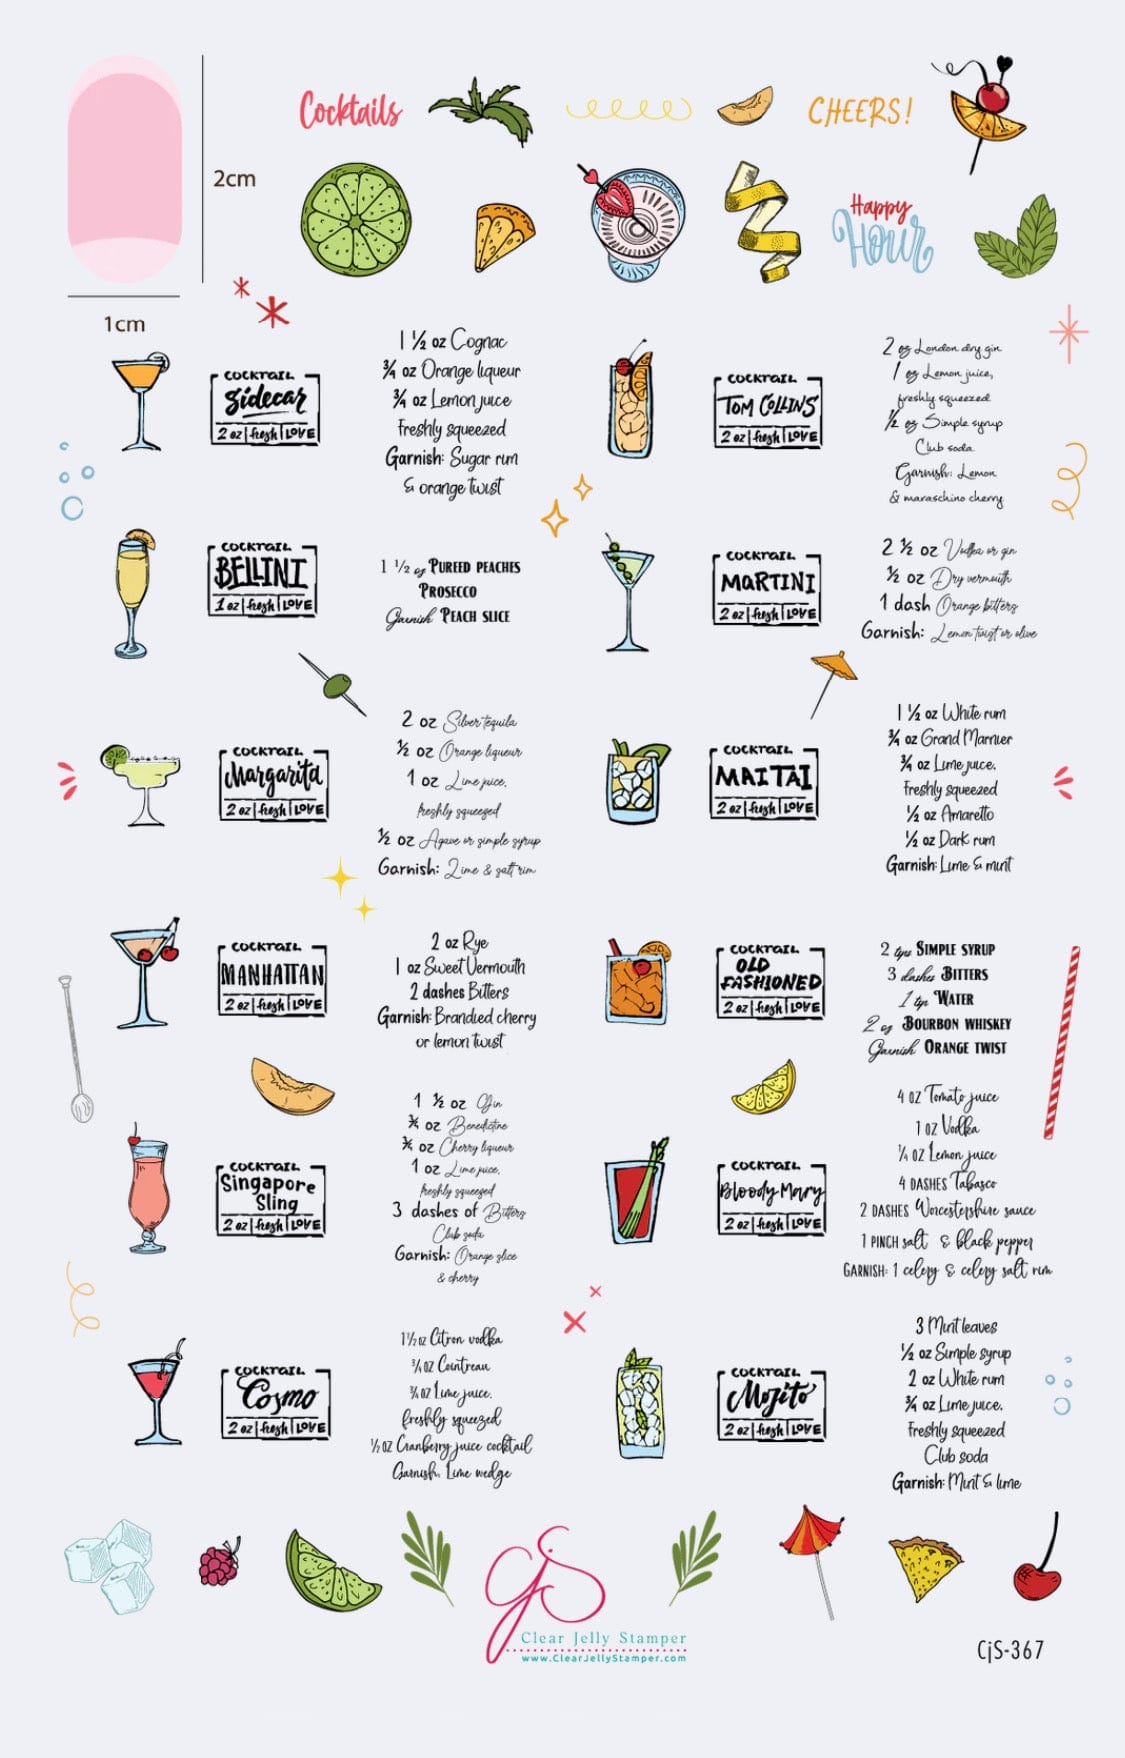 Cocktails
CHEERS!
2cm
Happy
Hour
1cm
COCKTAIL
Sidecar
2 oz | fresh | LOVE
1 ½ oz Cognac
¾ oz Orange liqueur
¾ oz Lemon juice
Freshly squeezed
Garnish: Sugar rim
& orange twist
COCKTAIL
TOM COLLINS
2 oz | fresh | LOVE
2 oz London dry gin
1 oz Lemon juice,
freshly squeezed
½ oz Simple syrup
Club soda
Garnish: Lemon
& maraschino cherry
COCKTAIL
BELLINI
1 oz | fresh | LOVE
1 ½ oz PUREED PEACHES
PROSECCO
Garnish PEACH SLICE
COCKTAIL
MARTINI
2 oz | fresh | LOVE
2 ½ oz Vodka or gin
½ oz Dry vermouth
1 dash Orange bitters
Garnish: Lemon twist or olive
COCKTAIL
Margarita
2 oz | fresh | LOVE
2 oz Silver tequila
½ oz Orange liqueur
1 oz Lime juice,
freshly squeezed
½ oz Agave or simple syrup
Garnish: Lime & salt rim
COCKTAIL
MAI TAI
2 oz | fresh | LOVE
1 ½ oz White rum
¾ oz Grand Marnier
¾ oz Lime juice,
freshly squeezed
½ oz Amaretto
½ oz Dark rum
Garnish: Lime & mint
COCKTAIL
MANHATTAN
2 oz | fresh | LOVE
2 oz Rye
1 oz Sweet Vermouth
2 dashes Bitters
Garnish: Brandied cherry
or lemon twist
COCKTAIL
OLD
FASHIONED
2 oz | fresh | LOVE
2 tsps SIMPLE SYRUP
3 dashes BITTERS
1 tsp WATER
2 oz BOURBON WHISKEY
Garnish ORANGE TWIST
COCKTAIL
Singapore
Sling
2 oz | fresh | LOVE
1 ½ oz Gin
¾ oz Benedictine
¾ oz Cherry liqueur
1 oz Lime juice,
freshly squeezed
3 dashes of Bitters
Club soda
Garnish: Orange slice
& cherry
COCKTAIL
Bloody Mary
2 oz | fresh | LOVE
4 OZ Tomato juice
1 OZ Vodka
¼ OZ Lemon juice
4 DASHES Tabasco
2 DASHES Worcestershire sauce
1 PINCH salt & black pepper
GARNISH: 1 celery & celery salt rim
COCKTAIL
Cosmo
2 oz | fresh | LOVE
1½ OZ Citron vodka
¾ OZ Cointreau
¾ OZ Lime juice,
freshly squeezed
½ OZ Cranberry juice cocktail
Garnish: Lime wedge
COCKTAIL
Mojito
2 oz | fresh | LOVE
3 Mint leaves
½ oz Simple syrup
2 oz White rum
¾ oz Lime juice,
Freshly squeezed
Club soda
Garnish: Mint & lime
CjS
Clear Jelly Stamper
www.ClearJellyStamper.com
CjS-367